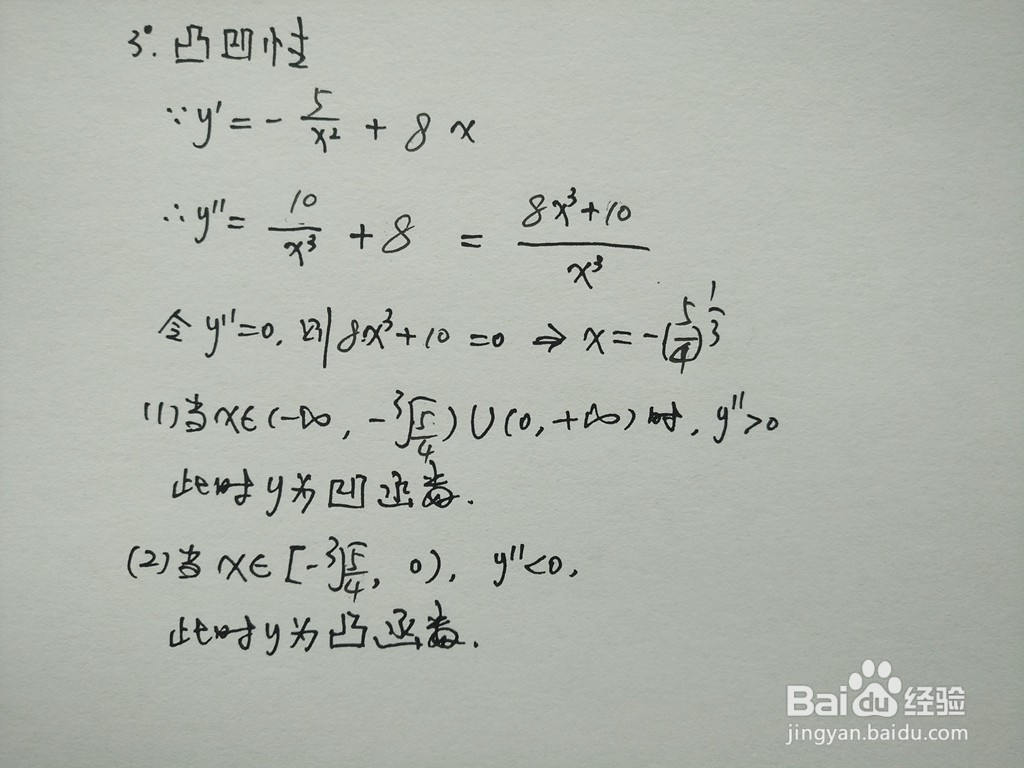 3°. 凸凹性
∵y' = - 5/x² + 8x
∴y'' = 10/x³ + 8 = (8x³+10)/x³
令y''=0, 则8x³+10=0 ⇒ x=-(5/4)^(1/3)
(1)当x∈(-∞, -³√(5/4))∪(0,+∞)时, y''>0
此时y为凹函数.
(2)当x∈[-³√(5/4), 0), y''<0,
此时y为凸函数.
Baidu经验
jingyan.baidu.com